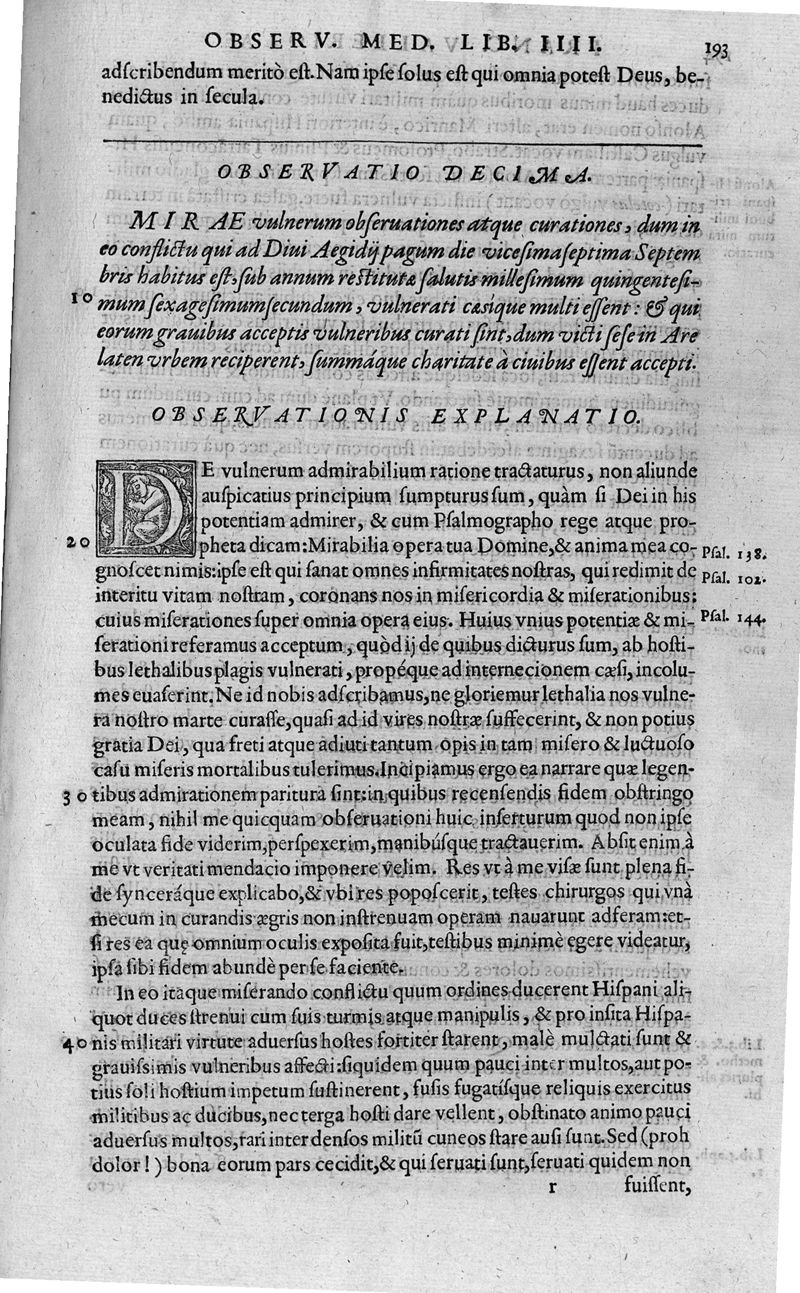 OBSERV. MED. LIB. IIII. 193
adſcribendum meritò eſt. Nam ipſe ſolus eſt qui omnia poteſt Deus, be-
nedictus in ſecula.
OBSERVATIO DECIMA.
MIRAE vulnerum obſeruationes atque curationes, dum in
eo conflictu qui ad Diui Aegidij pagum die viceſimaſeptima Septem
bris habitus eſt, ſub annum reſtitutæ ſalutis milleſimum quingenteſi-
10 mum ſexageſimumſecundum, vulnerati cæsique multi eſſent: & qui
eorum grauibus acceptis vulneribus curati ſint, dum victi ſeſe in Are
laten vrbem reciperent, ſummáque charitate à ciuibus eſſent accepti.
OBSERVATIONIS EXPLANATIO.
DE vulnerum admirabilium ratione tractaturus, non aliunde
auſpicatius principium ſumpturus ſum, quàm ſi Dei in his
potentiam admirer, & cum Pſalmographo rege atque pro-
20 pheta dicam: Mirabilia opera tua Domine, & anima mea co- Pſal. 138.
gnoſcet nimis: ipſe eſt qui ſanat omnes infirmitates noſtras, qui redimit de Pſal. 102.
interitu vitam noſtram, coronans nos in miſericordia & miſerationibus:
cuius miſerationes ſuper omnia opera eius. Huius vnius potentiæ & mi- Pſal. 144.
ſerationi referamus acceptum, quòd ij de quibus dicturus ſum, ab hoſti-
bus lethalibus plagis vulnerati, propéque ad internecionem cæſi, incolu-
mes euaſerint. Ne id nobis adſcribamus, ne gloriemur lethalia nos vulne-
ra noſtro marte curaſſe, quaſi ad id vires noſtræ ſuffecerint, & non potius
gratia Dei, qua freti atque adiuti tantum opis in tam miſero & luctuoſo
caſu miſeris mortalibus tulerimus. Incipiamus ergo ea narrare quæ legen-
30 tibus admirationem paritura ſint: in quibus recenſendis fidem obſtringo
meam, nihil me quicquam obſeruationi huic inſerturum quod non ipſe
oculata fide viderim, perſpexerim, manibúſque tractauerim. Abſit enim à
me vt veritati mendacio imponere velim. Res vt à me viſæ ſunt plena fi-
de ſynceráque explicabo, & vbi res popoſcerit, teſtes chirurgos qui vnà
mecum in curandis ægris non inſtrenuam operam nauarunt adferam: et-
ſi res ea quę omnium oculis expoſita fuit, teſtibus minimè egere videatur,
ipſa ſibi fidem abundè per ſe faciente.
In eo itaque miſerando conflictu quum ordines ducerent Hiſpani ali-
quot duces ſtrenui cum ſuis turmis atque manipulis, & pro inſita Hiſpa-
40 nis militari virtute aduerſus hoſtes fortiter ſtarent, malè mulctati ſunt &
grauiſsimis vulneribus affecti: ſiquidem quum pauci inter multos, aut po-
tius ſoli hoſtium impetum ſuſtinerent, fuſis fugatíſque reliquis exercitus
militibus ac ducibus, nec terga hoſti dare vellent, obſtinato animo pauci
aduerſus multos, rari inter denſos militũ cuneos ſtare auſi ſunt. Sed (proh
dolor!) bona eorum pars cecidit, & qui ſeruati ſunt, ſeruati quidem non
r fuiſſent,